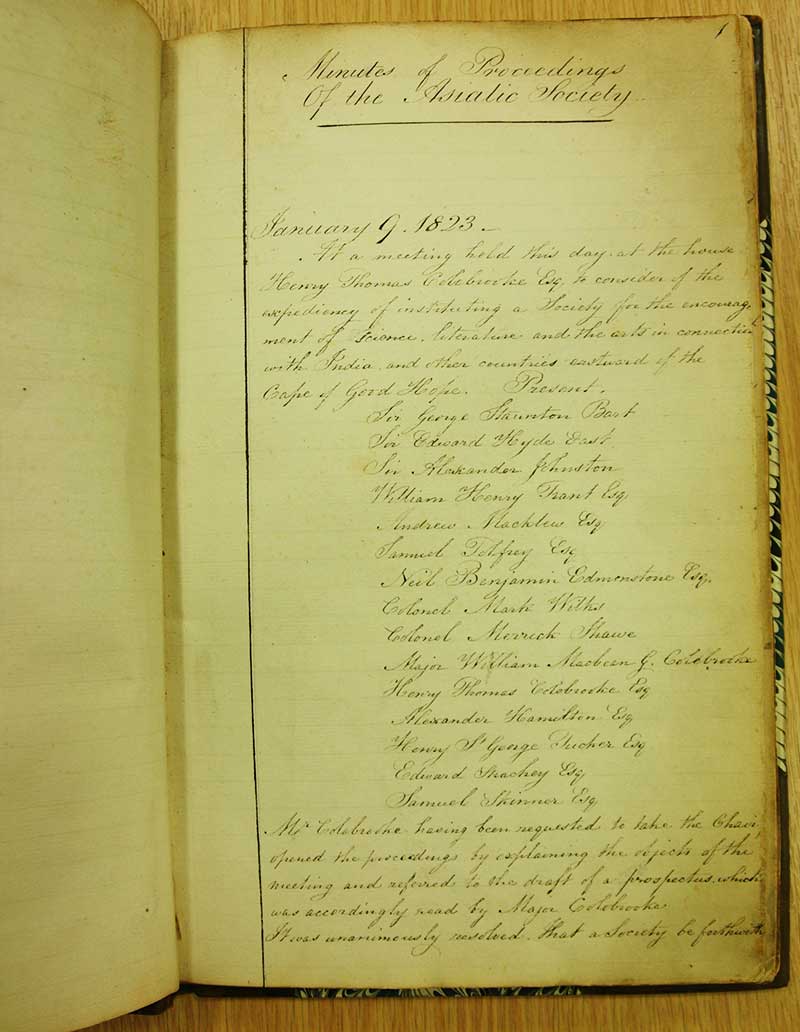 1
Minutes of Proceedings
Of the Asiatic Society
January 9. 1823.
At a meeting held this day at the house
Henry Thomas Colebrooke Esq. to consider of the
expediency of instituting a Society for the encourage
ment of science, literature and the arts in connection
with India and other countries eastward of the
Cape of Good Hope. Present.
Sir George Staunton Bart
Sir Edward Hyde East
Sir Alexander Johnston
William Henry Trant Esq
Andrew Macklew Esq
Samuel Tolfrey Esq
Neil Benjamin Edmonstone Esq.
Colonel Mark Wilks
Colonel Merrick Shawe
Major William Macbean G. Colebrooke
Henry Thomas Colebrooke Esq
Alexander Hamilton Esq
Henry St George Tucker Esq
Edward Strachey Esq
Samuel Skinner Esq
Mr Colebrooke having been requested to take the Chair,
opened the proceedings by explaining the objects of the
meeting and referred to the draft of a prospectus, which
was accordingly read by Major Colebrooke
It was unanimously resolved, that a Society be forthwith